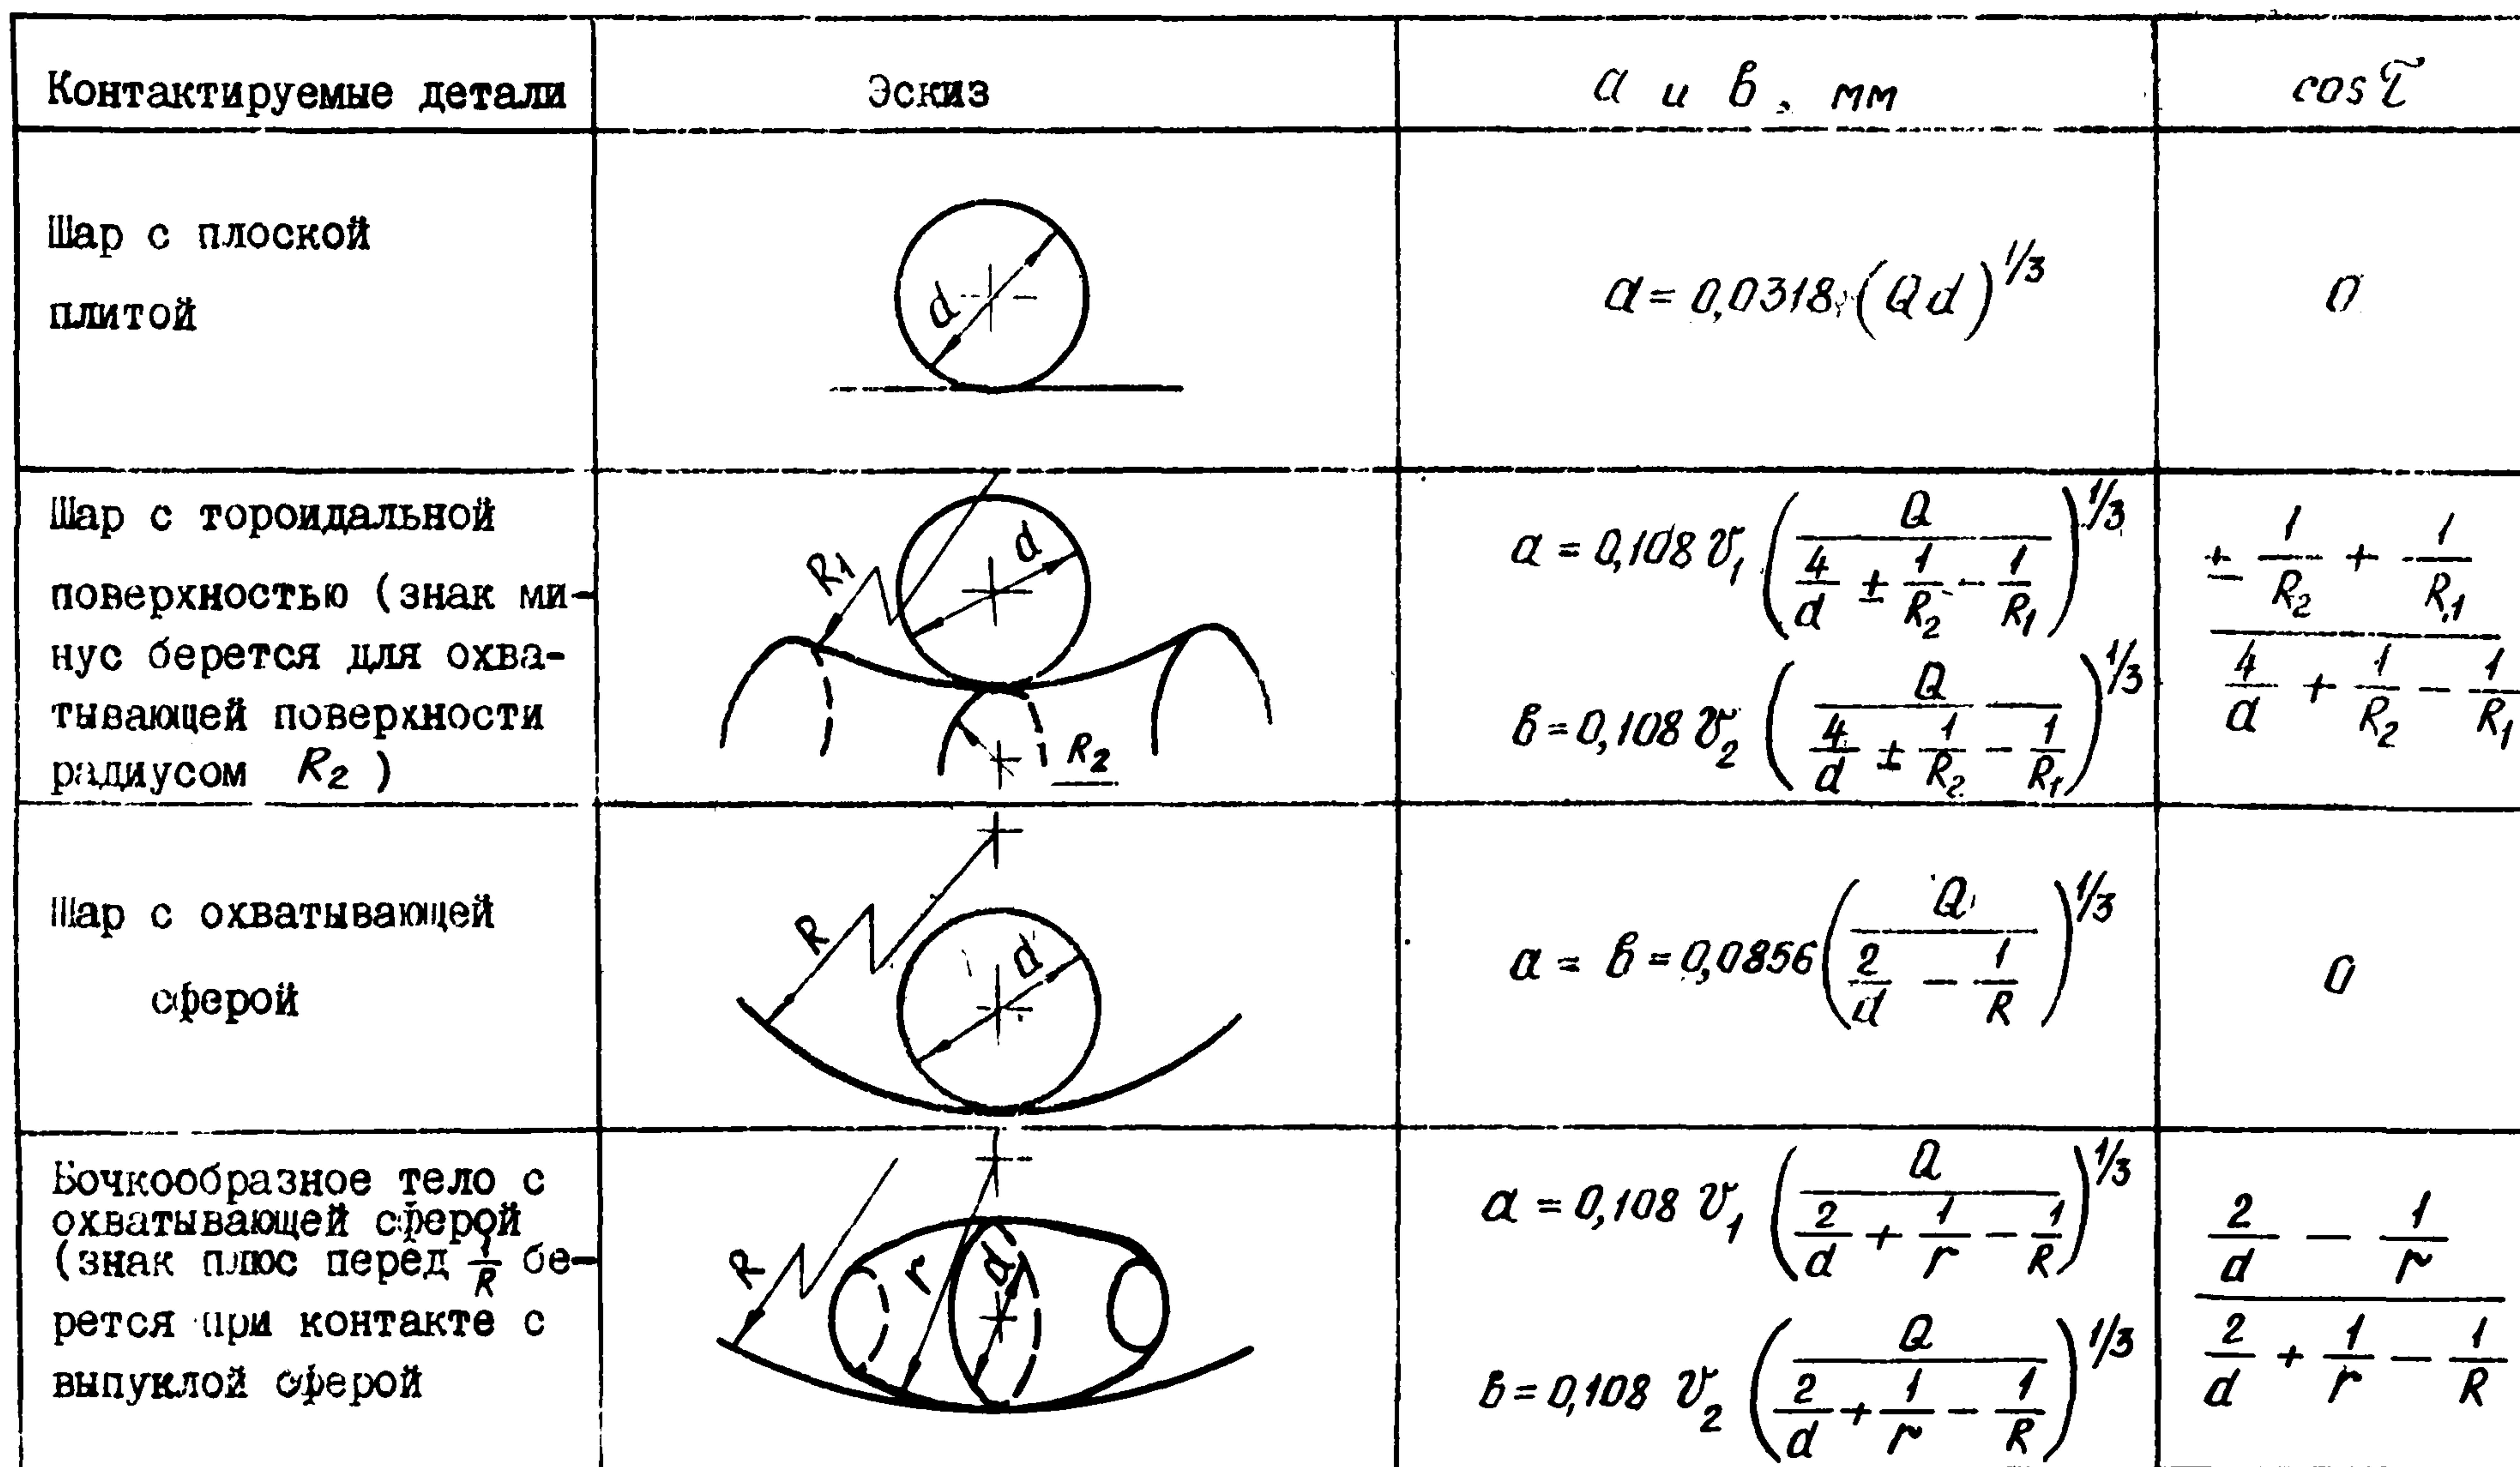 Контактируемые детали
Эскиз
a и в, мм
cos τ
Шар с плоской
плитой
d
a = 0,0318 (Qd)^1/3
0
Шар с тороидальной
поверхностью (знак ми-
нус берется для охва-
тывающей поверхности
радиусом R₂ )
R₁
d
R₂
a = 0,108 v₁ (Q / (4/d ± 1/R₂ - 1/R₁))^1/3
в = 0,108 v₂ (Q / (4/d ± 1/R₂ - 1/R₁))^1/3
(± 1/R₂ + 1/R₁) / (4/d + 1/R₂ - 1/R₁)
Шар с охватывающей
сферой
R
d
a = в = 0,0856 (Q / (2/d - 1/R))^1/3
0
Бочкообразное тело с
охватывающей сферой
(знак плюс перед 1/R бе-
рется при контакте с
выпуклой сферой
R
r
d
a = 0,108 v₁ (Q / (2/d + 1/r - 1/R))^1/3
в = 0,108 v₂ (Q / (2/d + 1/r - 1/R))^1/3
(2/d - 1/r) / (2/d + 1/r - 1/R)